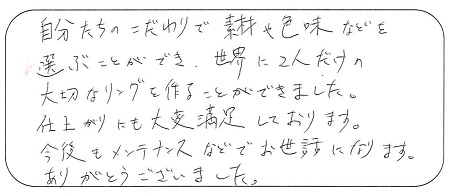 自分たちのこだわりで素材や色味などを
選ぶことができ、世界に2人だけの
大切なリングを作ることができました。
仕上がりにも大変満足しております。
今後もメンテナンスなどでお世話になります。
ありがとうございました。